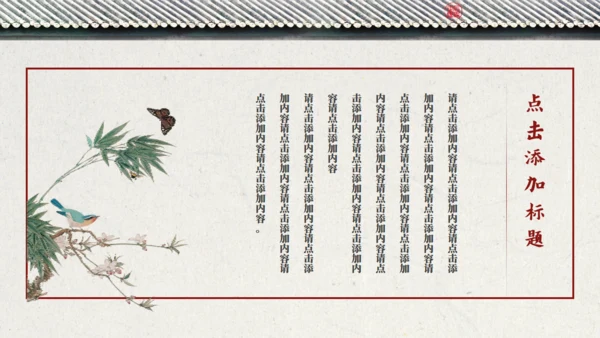 点击添加标题
请点击添加内容请点击添加内容请点击添
加内容请点击添加内容请点击添加内容请
点击添加内容请点击添加内容请点击添加
内容请点击添加内容请点击添加内容请点
击添加内容请点击添加内容请点击添加内
容请点击添加内容
请点击添加内容请点击添加内容请点击添
加内容请点击添加内容请点击添加内容请
点击添加内容请点击添加内容。